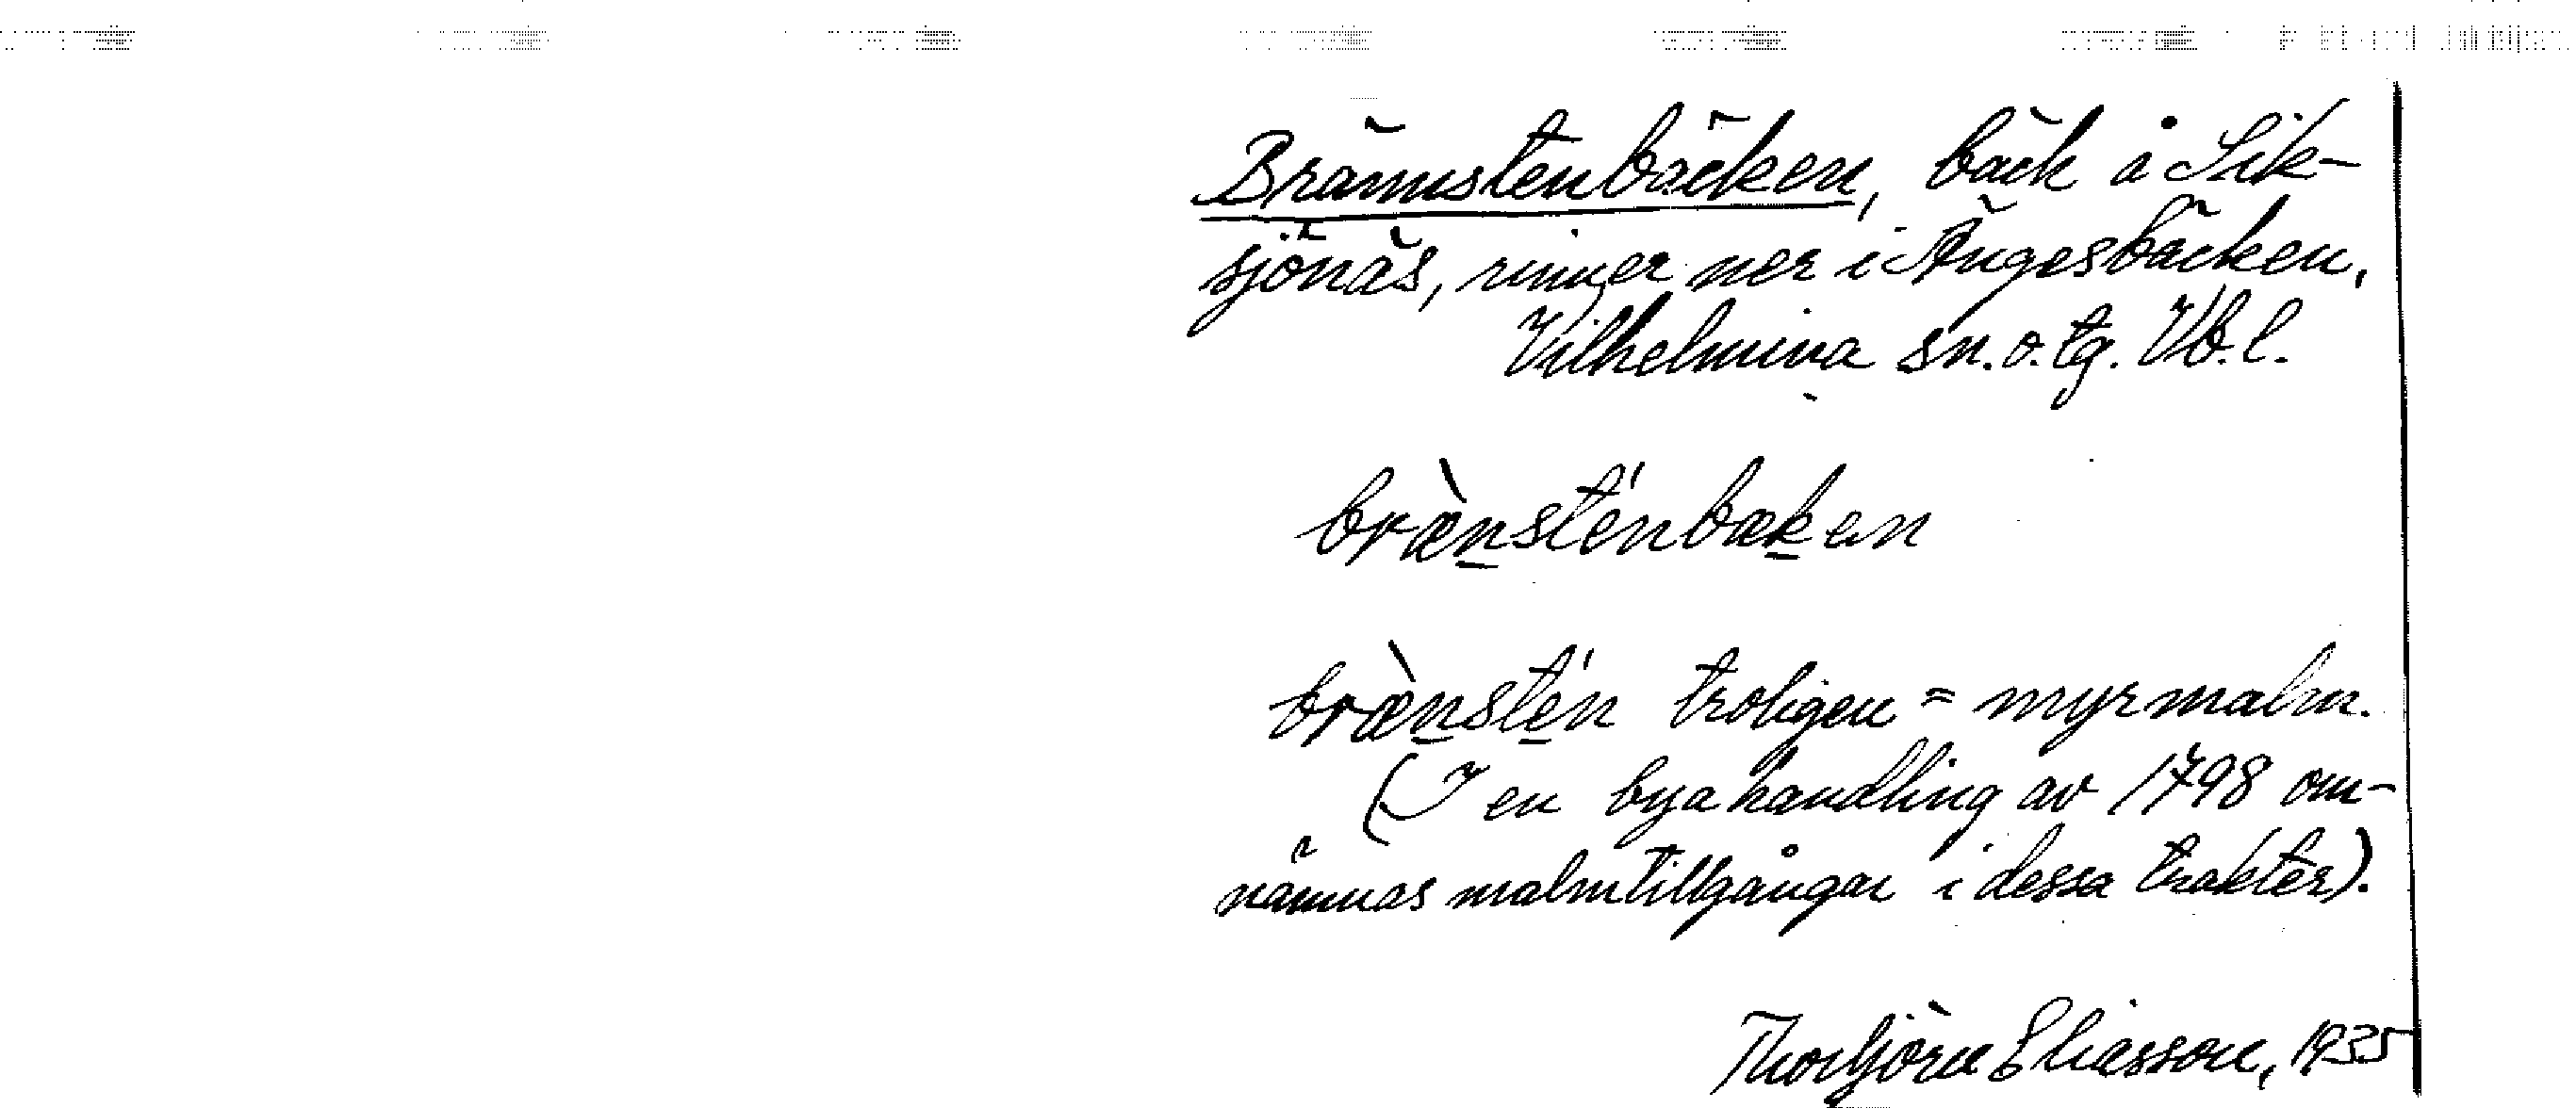 Brännstenbäcken, bäck å Sik-
sjönäs, rinner ner i Ängesbäcken,
Vilhelmina sn. o. tg. Vb. l.
bræ̀nsténbækan
bræ̀nstén troligen = myrmalm.
(I en byahandling av 1798 om-
nämnas malmtillgångar i dessa trakter).
Thorbjörn Eliasson, 1935